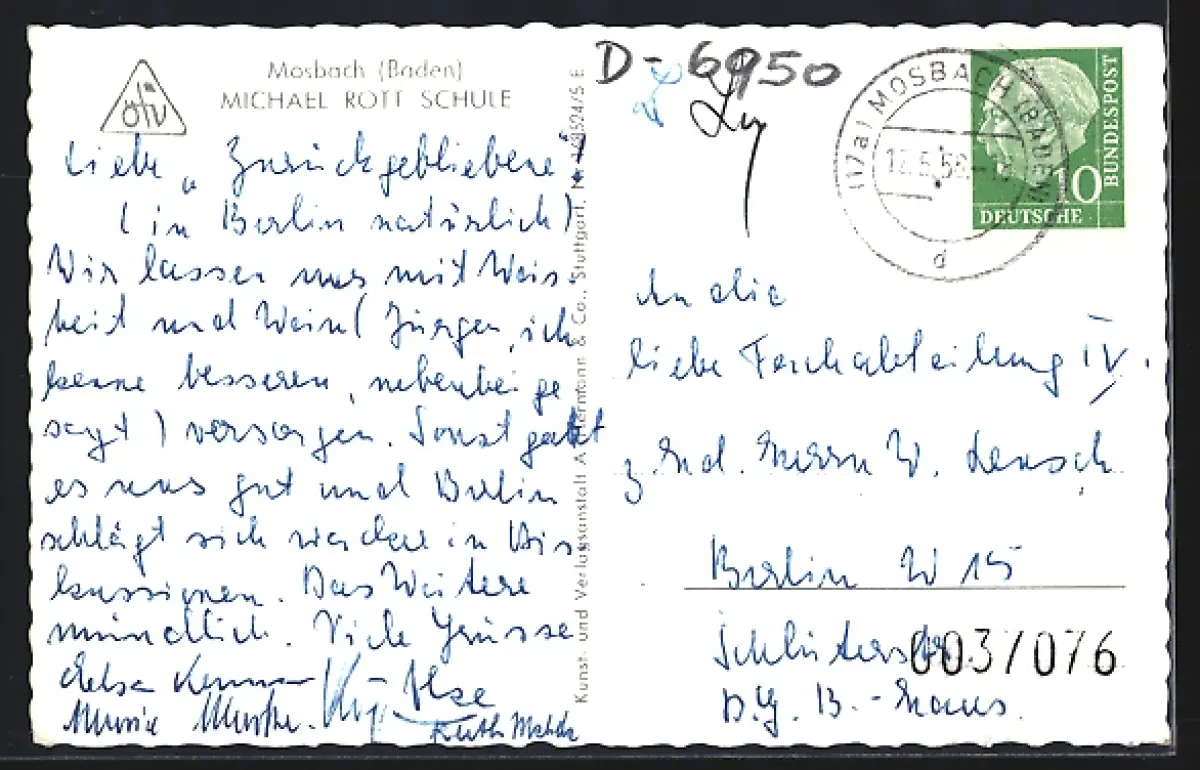 ÖTV
Mosbach (Baden)
MICHAEL ROTT SCHULE
Liebe „Zurückgebliebene"
(in Berlin natürlich)
Wir lassen uns mit Weis-
heit und Wein (Jürgen, ich
kenne besseren, nebenbei ge
sagt) versorgen. Sonst geht
es uns gut und Berlin
schlägt sich wacker in Dis-
kussionen. Das Weitere
mündlich. Viele Grüsse
Ilse
Ruth
Kunst- und Verlagsanstalt & Co., Stuttgart,
D-6950
(17a) MOSBACH (BADEN)
d
DEUTSCHE
BUNDESPOST
10
An die
liebe Fachabteilung IV.
z. Hd. Herrn W. Lensch
Berlin W 15
Schlüterstr.
D.G.B.-Haus.
0037076